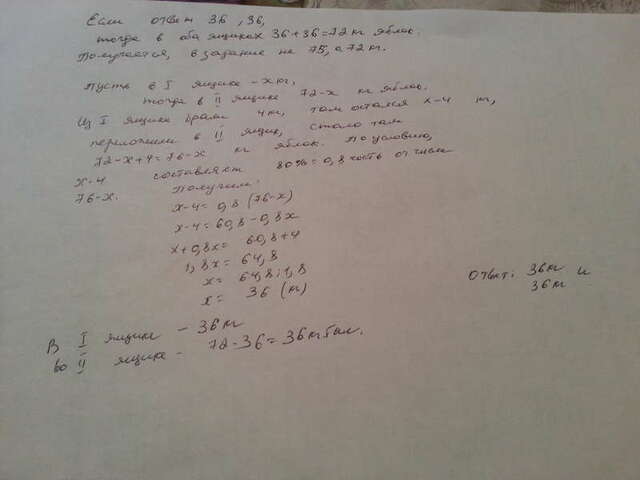 Если ответ 36, 36,
тогда в оба ящиках 36+36=72 кг яблок.
Получается, в задание не 75, а 72 кг.
Пусть в I ящике - x кг,
тогда в II ящике 72-x кг яблок.
Из I ящика брали 4 кг, там остался x-4 кг,
переложили в II ящик, стало там
72-x+4=76-x кг яблок. По условию,
x-4 составляет 80%=0,8 часть от числа
76-x. Получим:
x-4=0,8(76-x)
x-4=60,8-0,8x
x+0,8x=60,8+4
1,8x=64,8
x=64,8:1,8
x=36 (кг)
Ответ: 36кг и
36кг
В I ящике - 36кг
во II ящике - 72-36=36кг